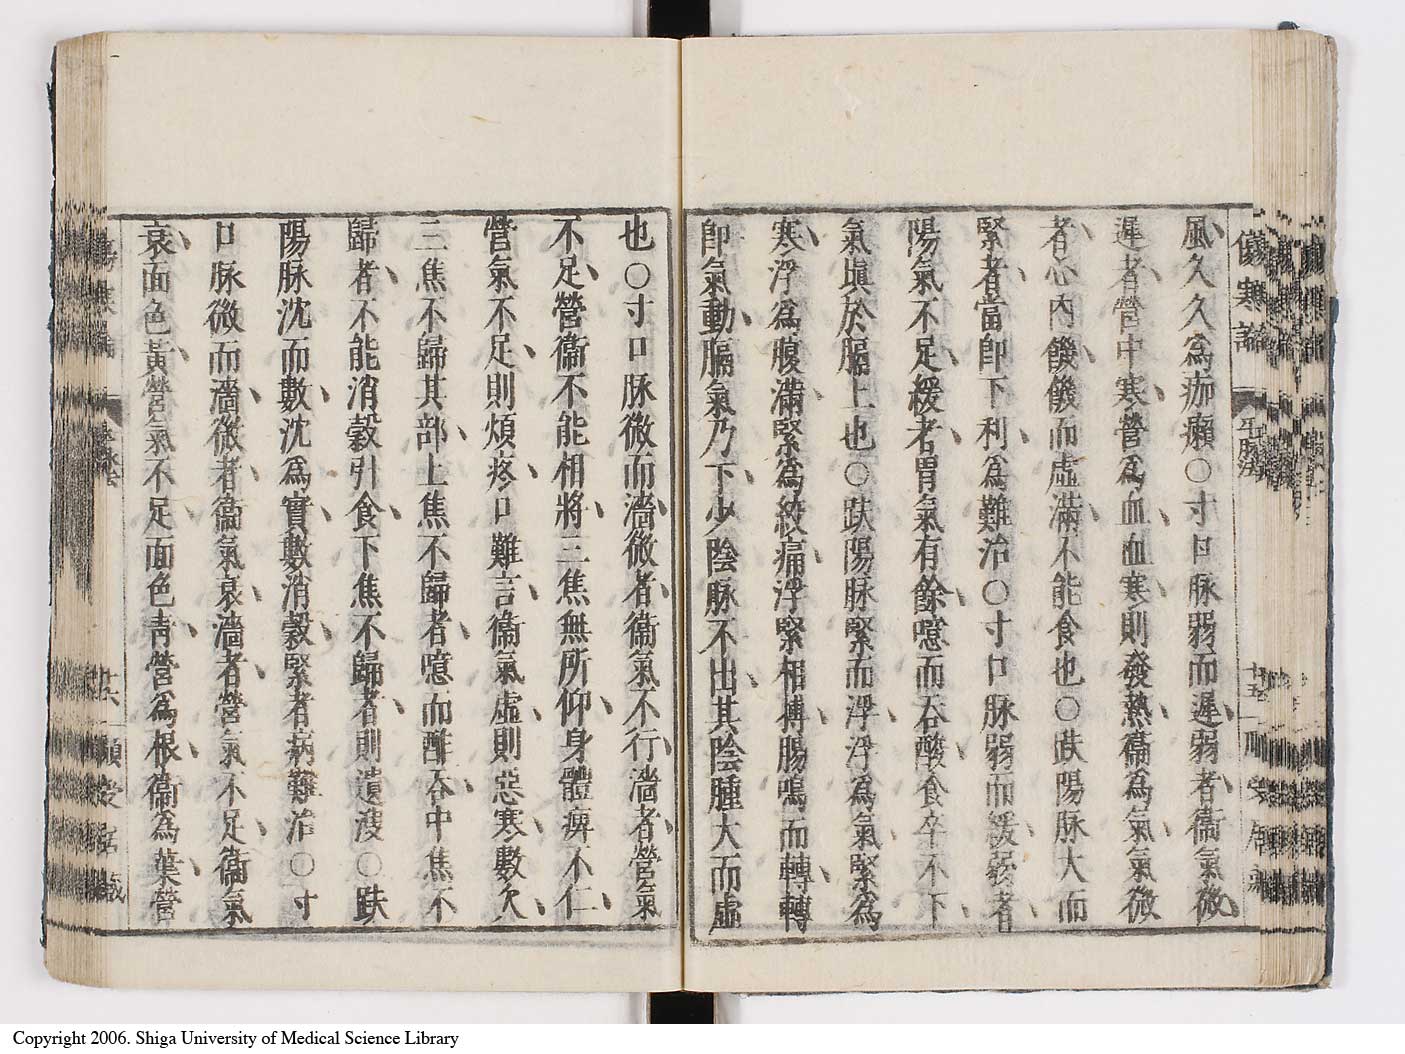 傷寒論 平脉法 十五
風久久爲痂癩○寸口脉弱而遲弱者衞氣微
遲者營中寒營爲血血寒則發熱衞爲氣氣微
者心內饑饑而虛滿不能食也○趺陽脉大而
緊者當卽下利爲難治○寸口脉弱而緩弱者
陽氣不足緩者胃氣有餘噫而吞酸食卒不下
氣塡於膈上也○趺陽脉緊而浮浮爲氣緊爲
寒浮爲腹滿緊爲絞痛浮緊相搏腸鳴而轉轉
卽氣動膈氣乃下少陰脉不出其陰腫大而虛
也○寸口脉微而濇微者衞氣不行濇者營氣
不足營衞不能相將三焦無所仰身體痺不仁
營氣不足則煩疼口難言衞氣虛則惡寒數欠
三焦不歸其部上焦不歸者噫而酢吞中焦不
歸者不能消穀引食下焦不歸者則遺溲○趺
陽脉沈而數沈爲實數消穀緊者病難治○寸
口脉微而濇微者衞氣衰濇者營氣不足衞氣
衰面色黃營氣不足面色靑營爲根衞爲葉營
十六
Copyright 2006. Shiga University of Medical Science Library